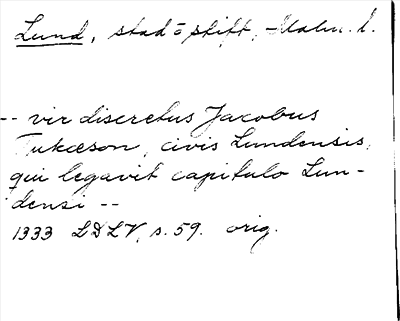 Lund, stad o stift, Malm. l.
-- vir discretus Jacobus
Tukæson, civis Lundensis,
qui legavit capitulo Lun-
densi --
1333 LDLV, s. 59. orig.